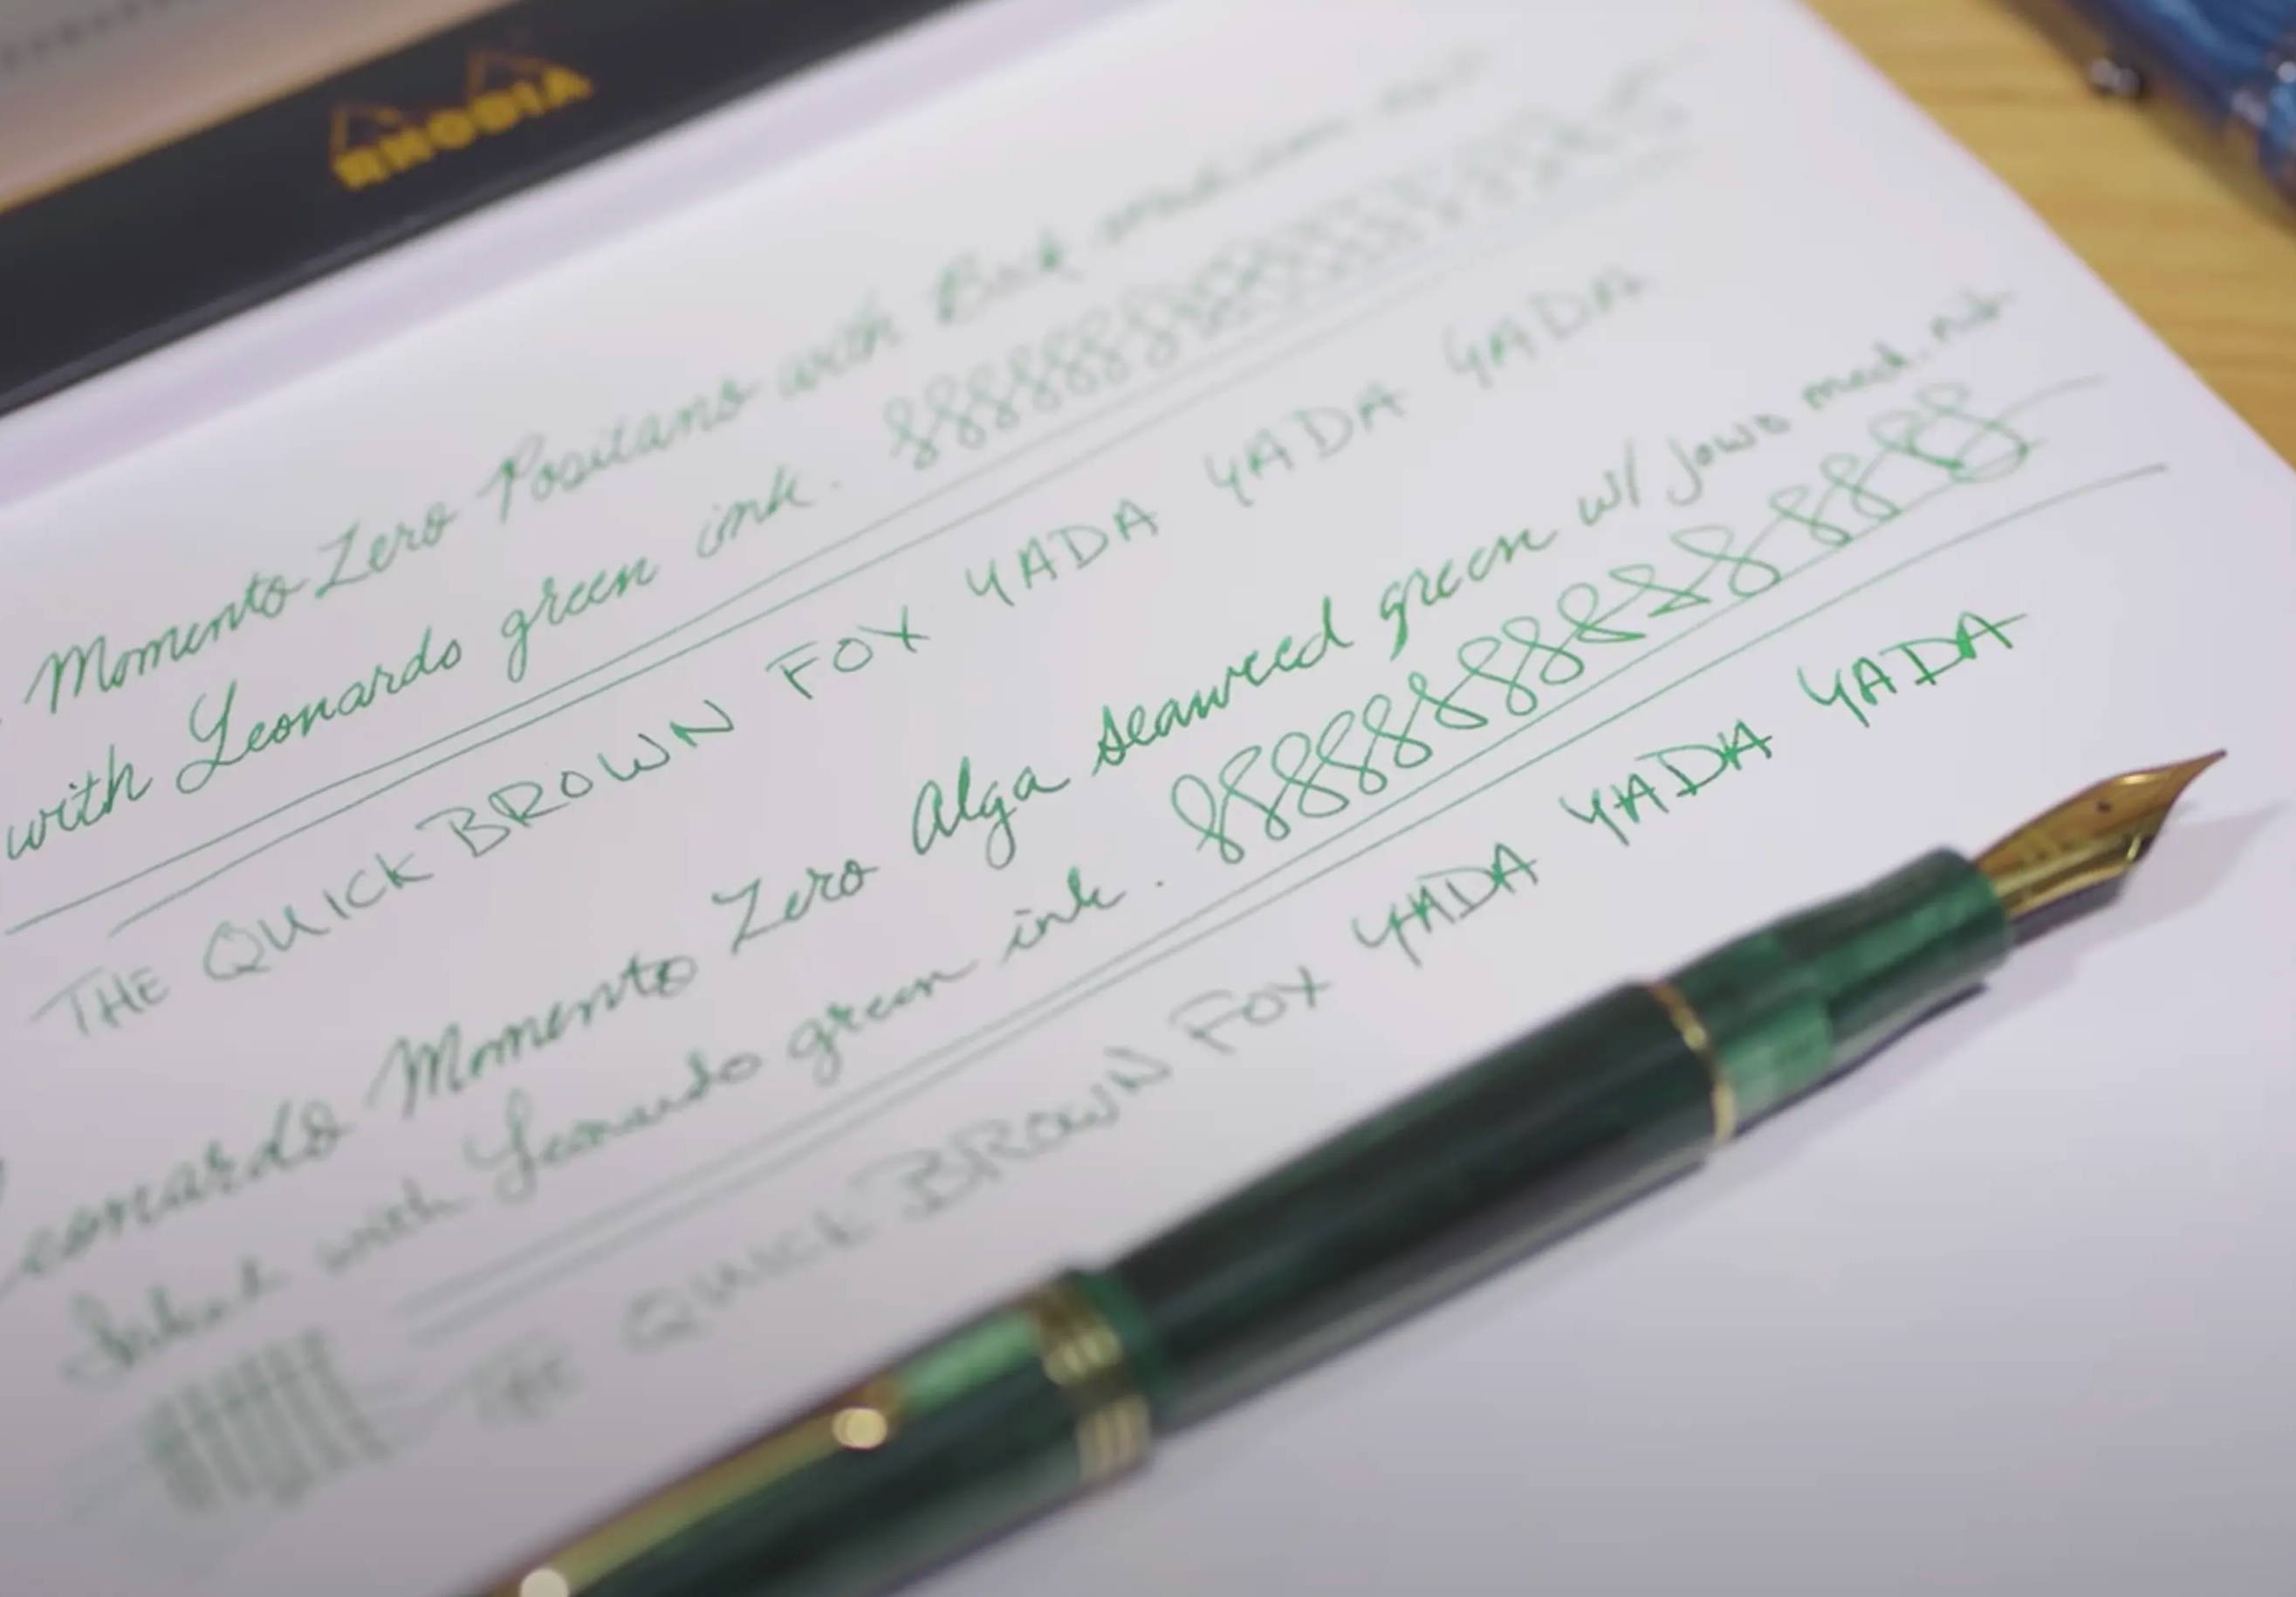 RHODIA
Momento Zero Positano with Bock
with Leonardo green ink. 888888888888888888
THE QUICK BROWN FOX YADA YADA YADA
eonardo Momento Zero Alga seaweed green w/ Jowo med. nib
Inked with Leonardo green ink. 888888888888888
THE QUICK BROWN FOX YADA YADA YADA